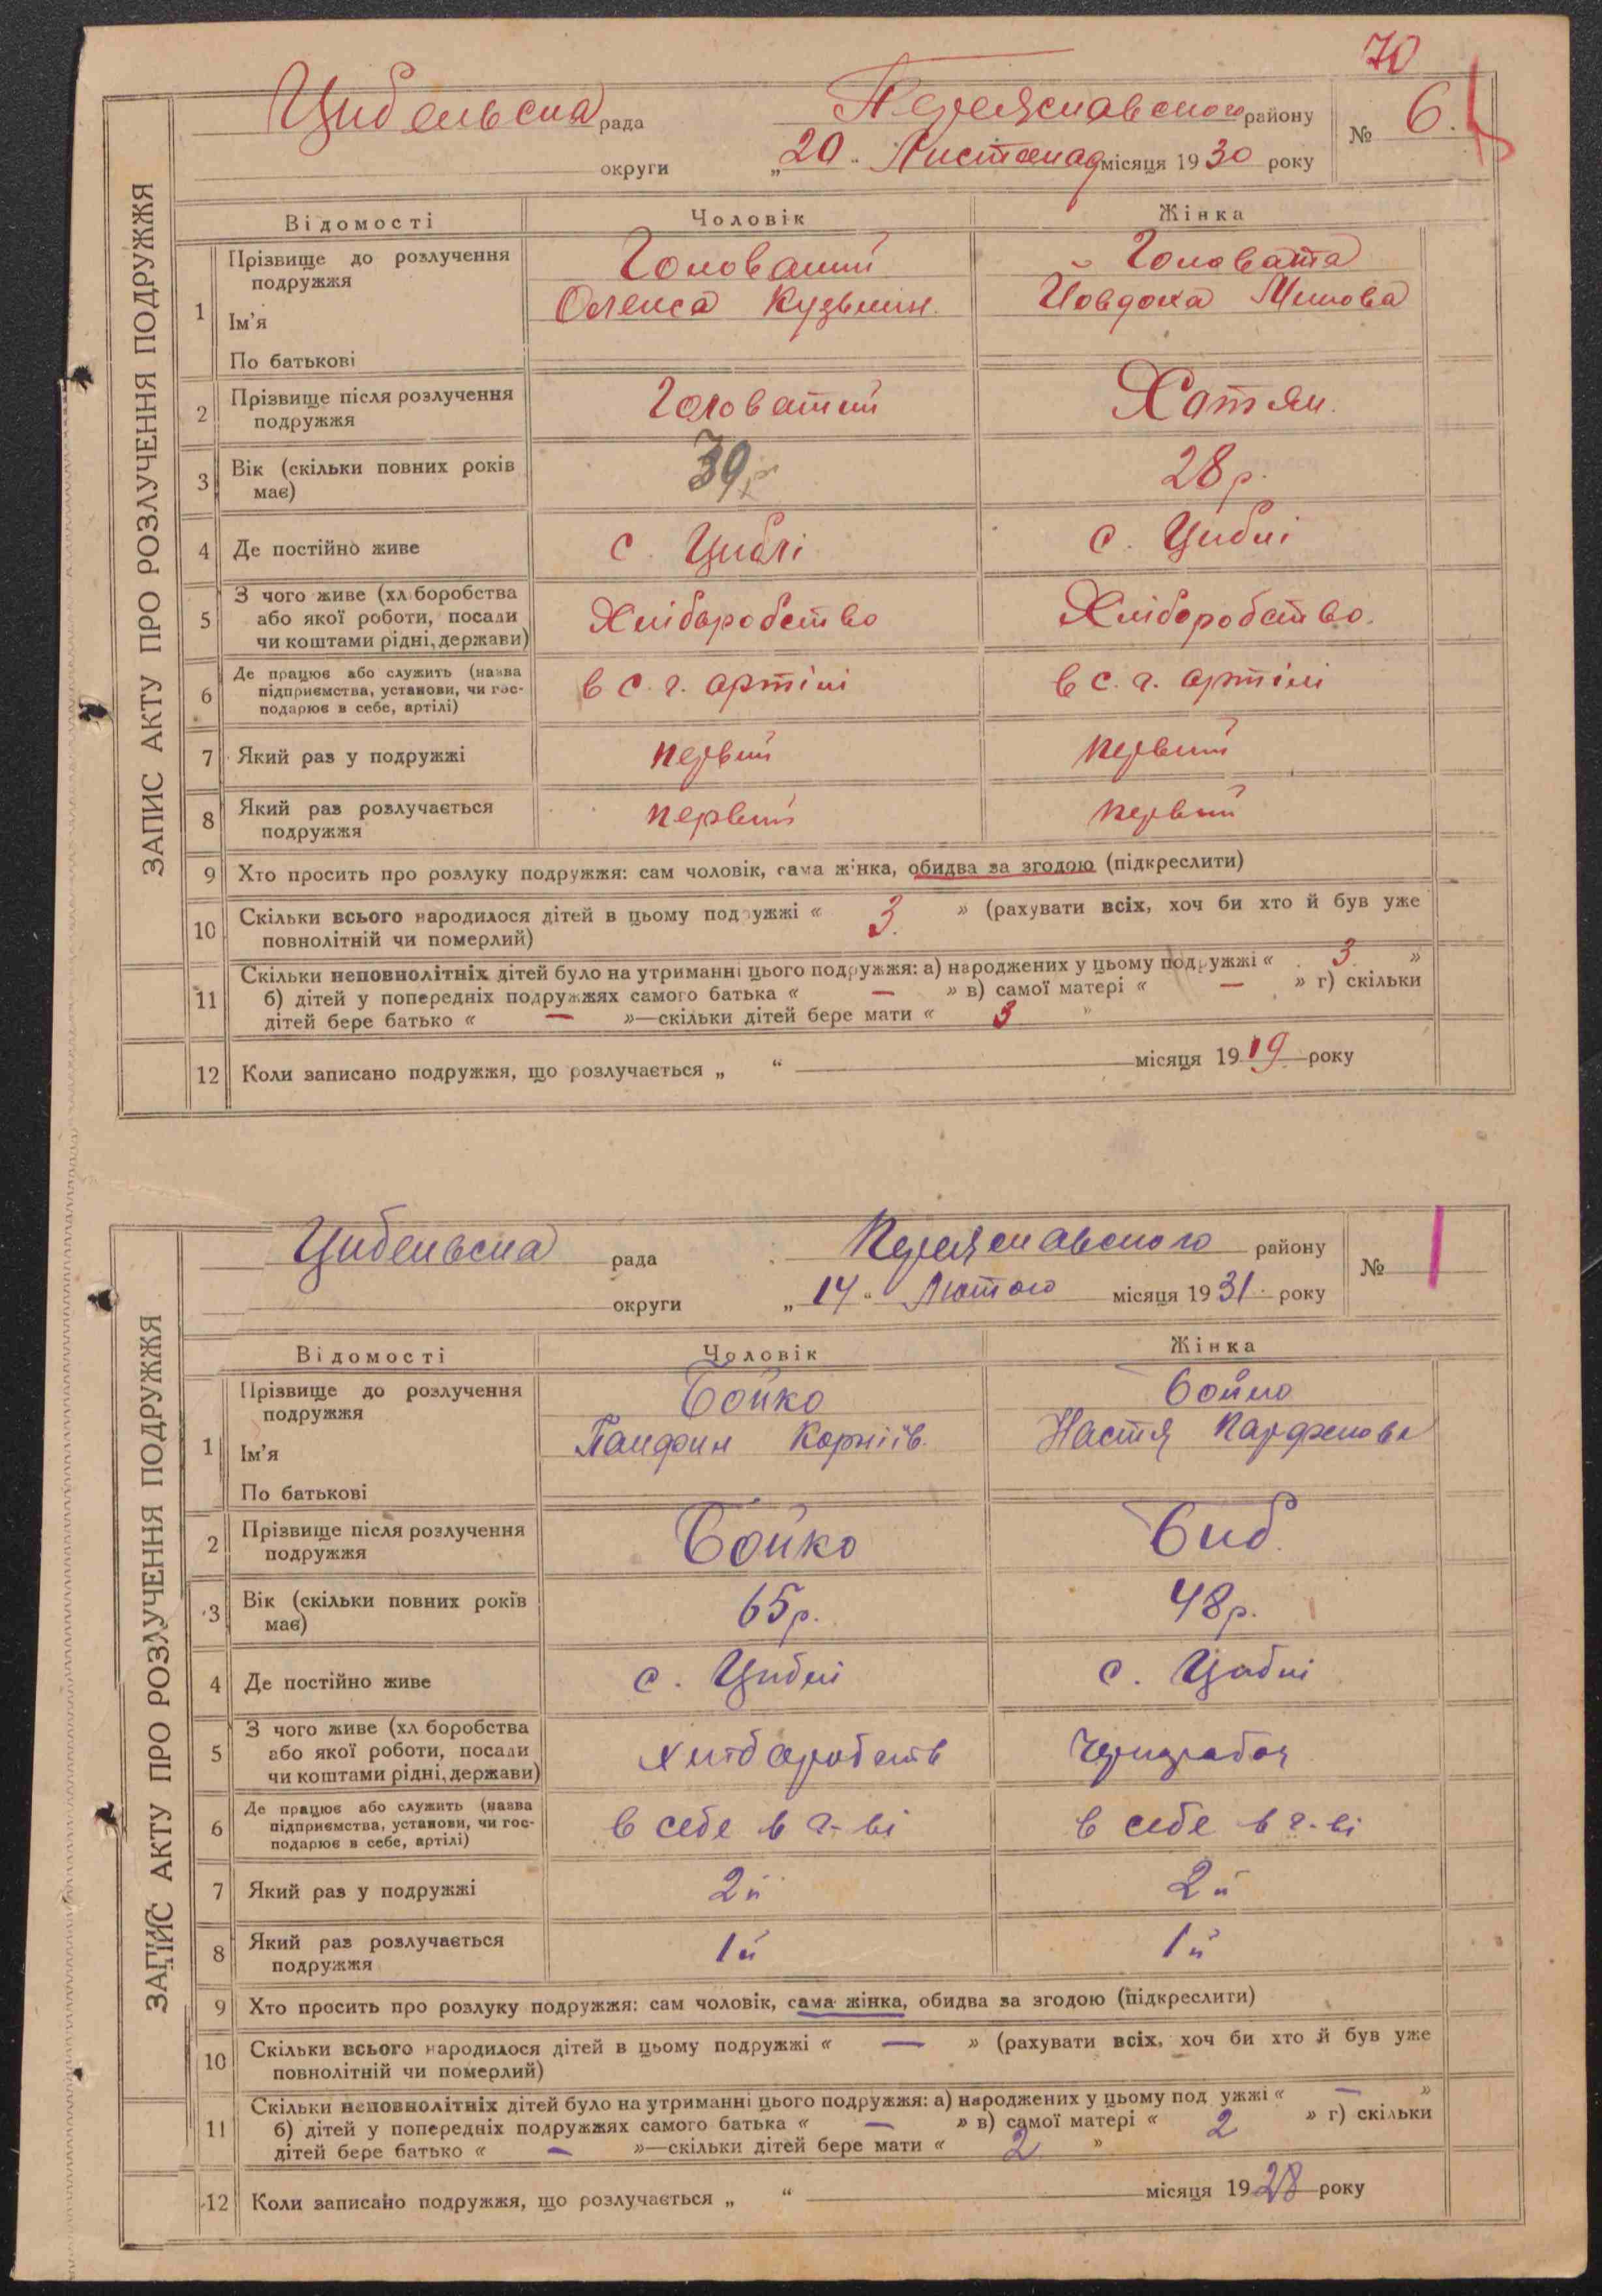 70
Цибельска рада Переяславського району № 6.
округи „20“ Листопад місяця 1930 року
ЗАПИС АКТУ ПРО РОЗЛУЧЕННЯ ПОДРУЖЖЯ
Відомості Чоловік Жінка
1 Прізвище до розлучення подружжя Головатий Головата
Ім'я Олекса Кузьмин. Йовдоха Мшова
По батькові
2 Прізвище після розлучення подружжя Головатий Хатян.
3 Вік (скільки повних років має) 39 р 28 р.
4 Де постійно живе с. Циблі с. Циблі
5 З чого живе (хліборобства або якої роботи, посади чи коштами рідні, держави) Хліборобство Хліборобство.
6 Де працює або служить (назва підприємства, установи, чи господарює в себе, артілі) в с. г. артілі в с. г. артілі
7 Який раз у подружжі первий первий
8 Який раз розлучається подружжя первий первий
9 Хто просить про розлуку подружжя: сам чоловік, сама жінка, обидва за згодою (підкреслити)
10 Скільки всього народилося дітей в цьому подружжі « 3. » (рахувати всіх, хоч би хто й був уже
повнолітній чи померлий)
11 Скільки неповнолітніх дітей було на утриманні цього подружжя: а) народжених у цьому подружжі « 3 »
б) дітей у попередніх подружжях самого батька « — » в) самої матері « — » г) скільки
дітей бере батько « — »—скільки дітей бере мати « 3 »
12 Коли записано подружжя, що розлучається „ “ місяця 1919 року
Цибельска рада Переяславського району № 1
округи „14“ Лютого місяця 1931. року
ЗАПИС АКТУ ПРО РОЗЛУЧЕННЯ ПОДРУЖЖЯ
Відомості Чоловік Жінка
1 Прізвище до розлучення подружжя Бойко Бойко
Ім'я Панфин Корніїв. Настя Парфенова
По батькові
2 Прізвище після розлучення подружжя Бойко Биб.
3 Вік (скільки повних років має) 65 р. 48 р.
4 Де постійно живе с. Циблі с. Циблі
5 З чого живе (хліборобства або якої роботи, посади чи коштами рідні, держави) хліборобств
6 Де працює або служить (назва підприємства, установи, чи господарює в себе, артілі) в себе в г-ві в себе в г-ві
7 Який раз у подружжі 2й 2й
8 Який раз розлучається подружжя 1й 1й
9 Хто просить про розлуку подружжя: сам чоловік, сама жінка, обидва за згодою (підкреслити)
10 Скільки всього народилося дітей в цьому подружжі « — » (рахувати всіх, хоч би хто й був уже
повнолітній чи померлий)
11 Скільки неповнолітніх дітей було на утриманні цього подружжя: а) народжених у цьому подружжі « — »
б) дітей у попередніх подружжях самого батька « — » в) самої матері « 2 » г) скільки
дітей бере батько « — »—скільки дітей бере мати « 2 »
12 Коли записано подружжя, що розлучається „ “ місяця 1928 року